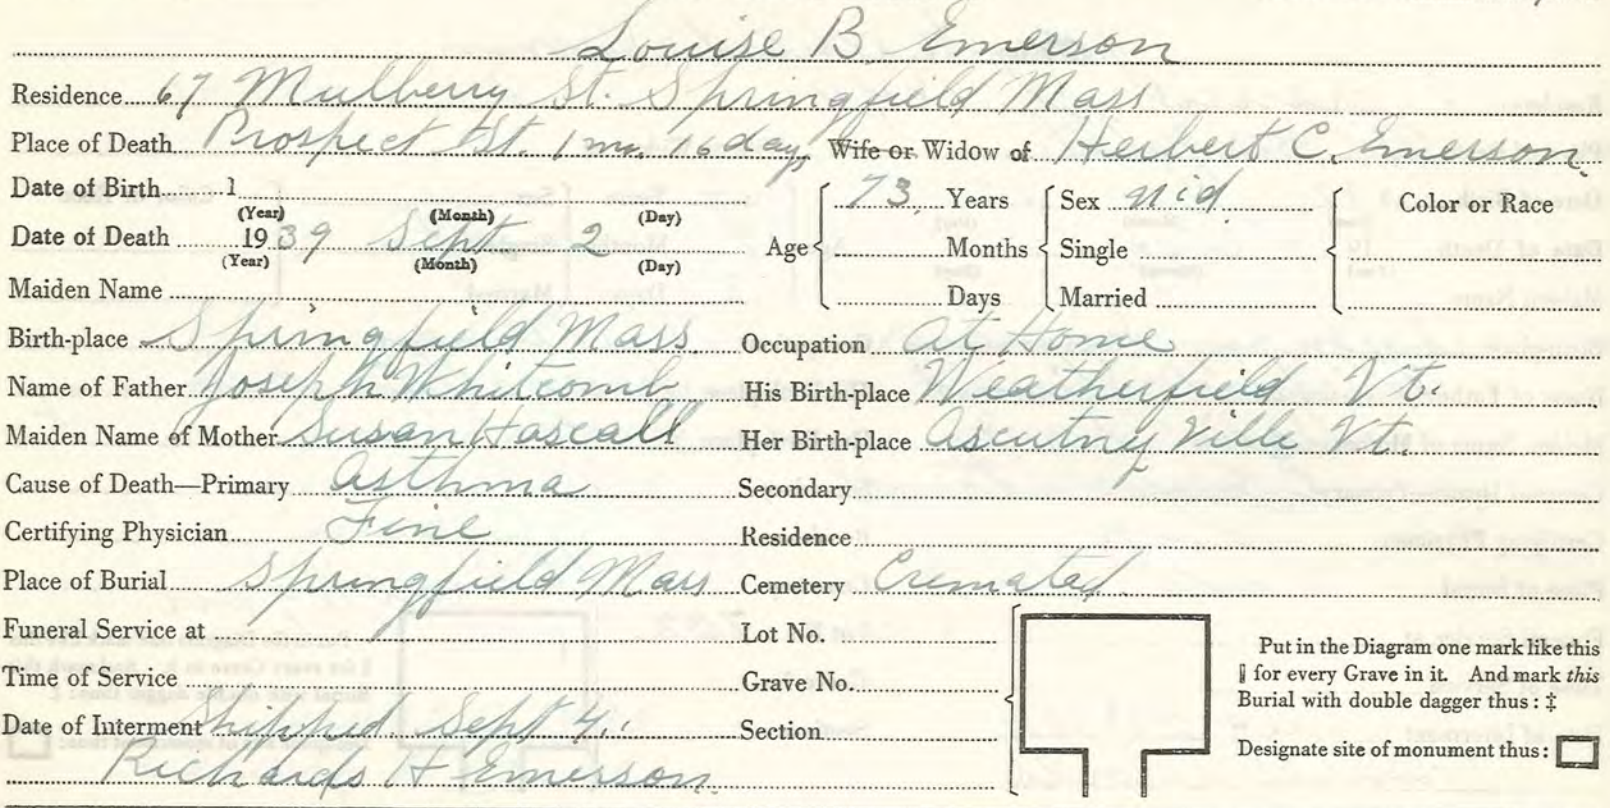 Louise B. Emerson
Residence 67 Mulberry St. Springfield Mass
Place of Death Prospect St. 1 mo. 16 days Wife or Widow of Herbert C. Emerson
Date of Birth 1 (Year) (Month) (Day)
Date of Death 1939 (Year) Sept (Month) 2 (Day)
Age 73 Years Months Days
Sex Wid. Single Married
Color or Race
Maiden Name
Birth-place Springfield Mass Occupation At Home
Name of Father Joseph Whitcomb His Birth-place Weatherfield Vt.
Maiden Name of Mother Susan Hascall Her Birth-place Ascutney Ville Vt.
Cause of Death—Primary Asthma Secondary
Certifying Physician Fine Residence
Place of Burial Springfield Mass Cemetery Cremated
Funeral Service at Lot No.
Time of Service Grave No.
Date of Interment Shipped Sept 4. Section
Richards H Emerson.
Put in the Diagram one mark like this
for every Grave in it. And mark this
Burial with double dagger thus: ‡
Designate site of monument thus: